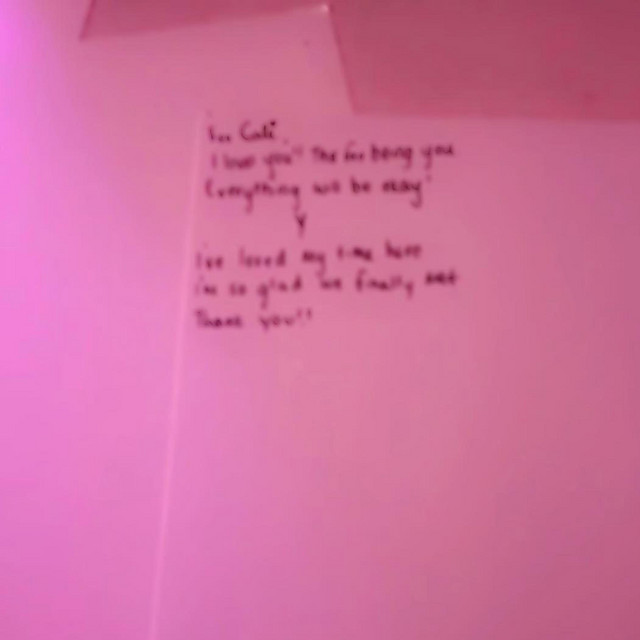 I love you!! for being you
Everything will be okay
I've loved my time here
I'm so glad we finally met
Thank you!!